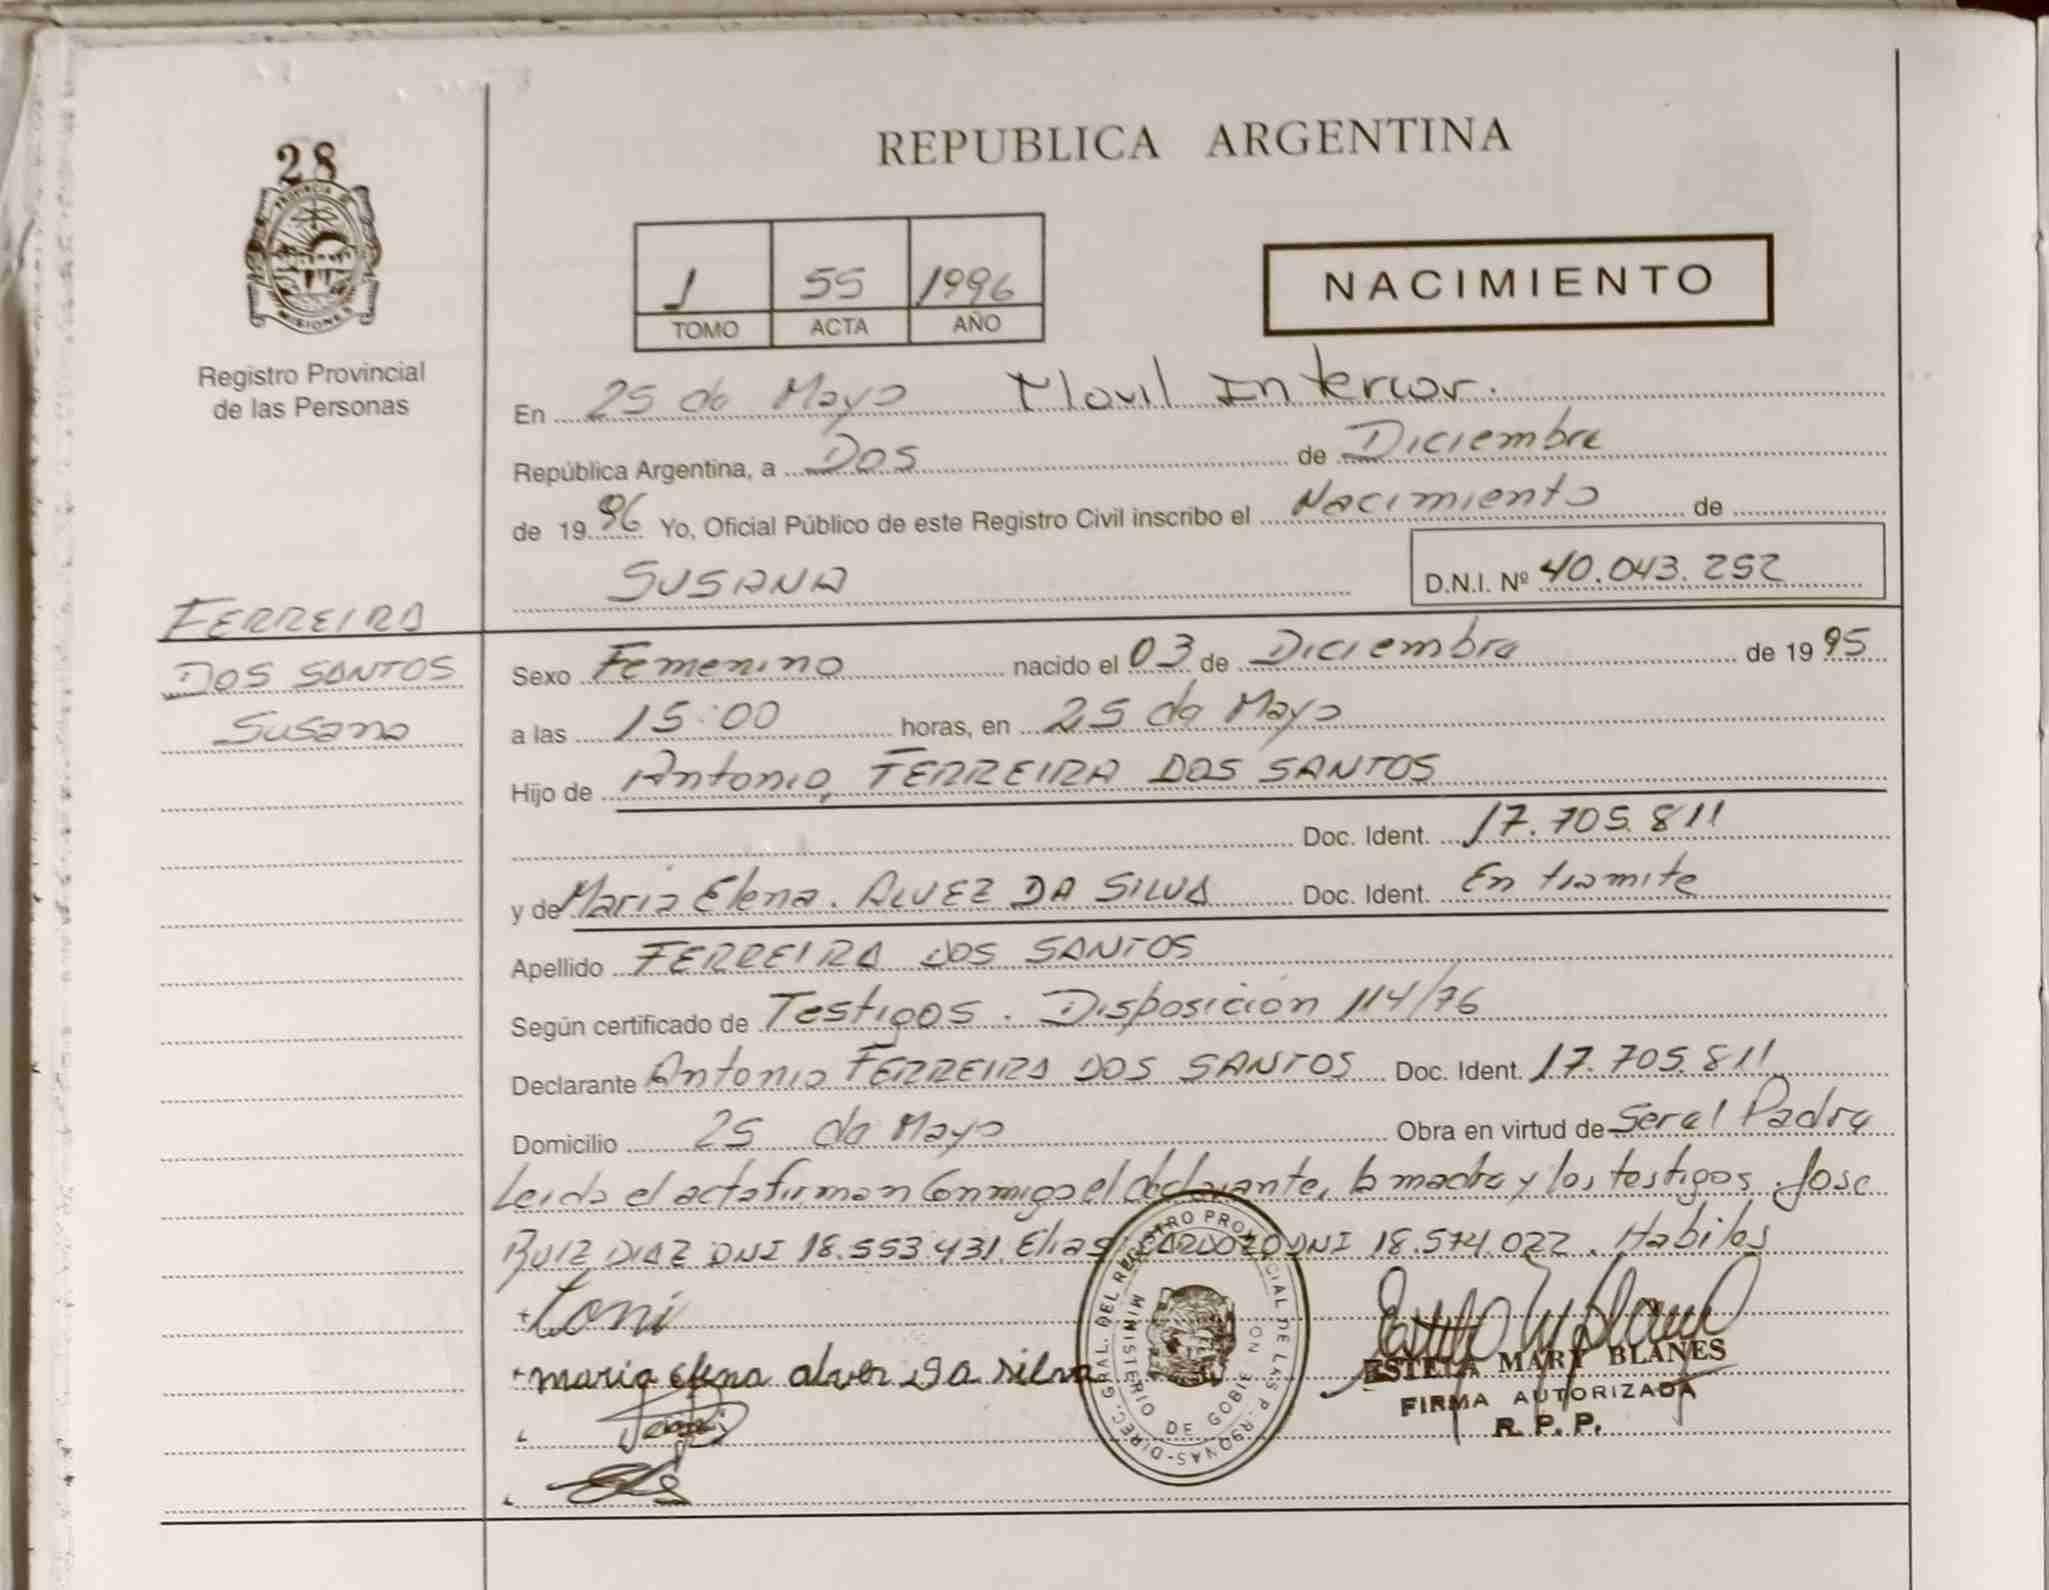 28
PROVINCIA DE
MISIONES
Registro Provincial
de las Personas
FERREIRA
DOS SANTOS
Susana
REPUBLICA ARGENTINA
1 55 1996
TOMO ACTA AÑO
NACIMIENTO
En 25 de Mayo Movil Interior.
República Argentina, a Dos de Diciembre
de 1996 Yo, Oficial Público de este Registro Civil inscribo el Nacimiento de
SUSANA D.N.I. Nº 40.043.252
Sexo Femenino nacido el 03 de Diciembre de 1995
a las 15:00 horas, en 25 de Mayo
Hijo de Antonio, FERREIRA DOS SANTOS
Doc. Ident. 17.705.811
y de Maria Elena. ALVEZ DA SILVA Doc. Ident. En tramite
Apellido FERREIRA DOS SANTOS
Según certificado de Testigos. Disposición 114/76
Declarante Antonio FERREIRA DOS SANTOS Doc. Ident. 17.705.811
Domicilio 25 de Mayo Obra en virtud de Ser el Padre
Leida el acta firman Conmigo el declarante, la madre y los testigos Jose
RUIZ DIAZ DNI 18.553.431, Elias CARDOZO DNI 18.574.022. Habiles
Toni
maria elena alvez da silva
DIREC. GRAL. DEL REGISTRO PROVINCIAL DE LAS PERSONAS
MINISTERIO DE GOBIERNO
ESTELA MARY BLANES
FIRMA AUTORIZADA
R. P. P.